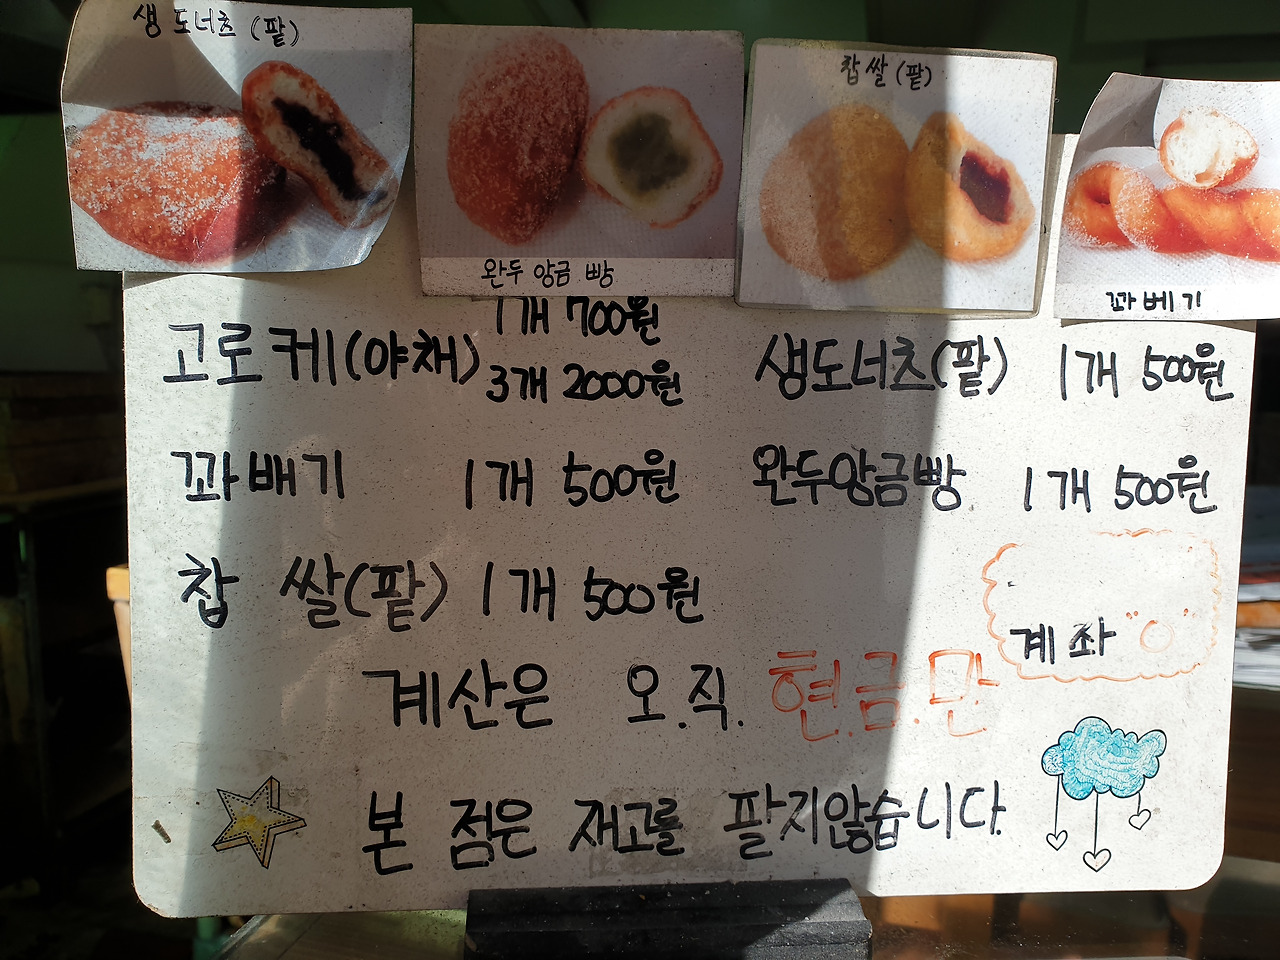 생도너츠(팥)
완두앙금빵
찹쌀(팥)
꽈베기
고로케(야채) 1개 700원
3개 2000원
생도너츠(팥) 1개 500원
꽈배기 1개 500원
완두앙금빵 1개 500원
찹쌀(팥) 1개 500원
계좌 "O"
계산은 오.직. 현.금.만
본 점은 재고를 팔지않습니다.